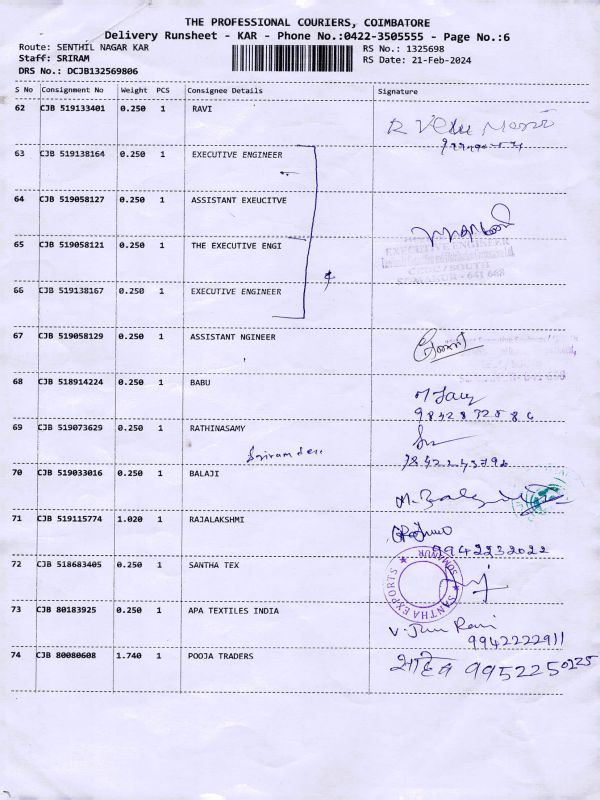 THE PROFESSIONAL COURIERS, COIMBATORE
Delivery Runsheet - KAR - Phone No.:0422-3505555 - Page No.:6
Route: SENTHIL NAGAR KAR
RS No.: 1325698
Staff: SRIRAM
RS Date: 21-Feb-2024
DRS No.: DCJB132569806
S No Consignment No Weight PCS Consignee Details Signature
62 CJB 519133401 0.250 1 RAVI
63 CJB 519138164 0.250 1 EXECUTIVE ENGINEER
64 CJB 519058127 0.250 1 ASSISTANT EXEUCITVE
65 CJB 519058121 0.250 1 THE EXECUTIVE ENGI
EXECUTIVE ENGINEER
66 CJB 519138167 0.250 1 EXECUTIVE ENGINEER
67 CJB 519058129 0.250 1 ASSISTANT NGINEER
68 CJB 518914224 0.250 1 BABU
69 CJB 519073629 0.250 1 RATHINASAMY
70 CJB 519033016 0.250 1 BALAJI
71 CJB 519115774 1.020 1 RAJALAKSHMI
9942232022
72 CJB 518683405 0.250 1 SANTHA TEX
SANTHA EXPORTS ★ SOMANUR ★
73 CJB 80183925 0.250 1 APA TEXTILES INDIA
9942222911
74 CJB 80080608 1.740 1 POOJA TRADERS
9952250225